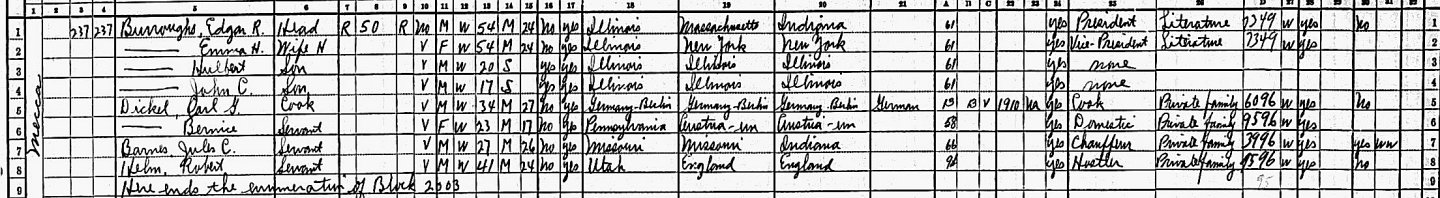 1 2 3 4 5 6 7 8 9 10 11 12 13 14 15 16 17 18 19 20 21 A B C 22 23 24 25 26 D 27 28 29 30 31 32
1 237 237 Burroughs, Edgar R. Head R 50 R No M W 54 M 24 no yes Illinois Massachusetts Indiana 61 yes President Literature 7349 W yes no 1
2 —— Emma H. Wife H V F W 54 M 24 no yes Illinois New York New York 61 yes Vice-President Literature 7349 W yes 2
3 —— Hulbert Son V M W 20 S yes yes Illinois Illinois Illinois 61 yes none 3
4 —— John C. Son V M W 17 S yes yes Illinois Illinois Illinois 61 yes none 4
5 Dickel, Carl G. Cook V M W 34 M 27 no yes Germany-Berlin Germany-Berlin Germany-Berlin German 13 V 1910 Na yes Cook Private family 6096 W yes no 5
6 —— Bernice Servant V F W 23 M 17 no yes Pennsylvania Austria-un Austria-un 58 yes Domestic Private family 9596 W yes 6
7 Barnes Jules C. Servant V M W 27 M 26 no yes Missouri Missouri Indiana 66 yes Chauffeur Private family 3996 W yes yes WW 7
8 Helm, Robert Servant V M W 41 M 24 no yes Utah England England yes Hostler Private family 9596 W yes no 8
9 Here ends the enumeration of Block 2003 95 9
Mecca